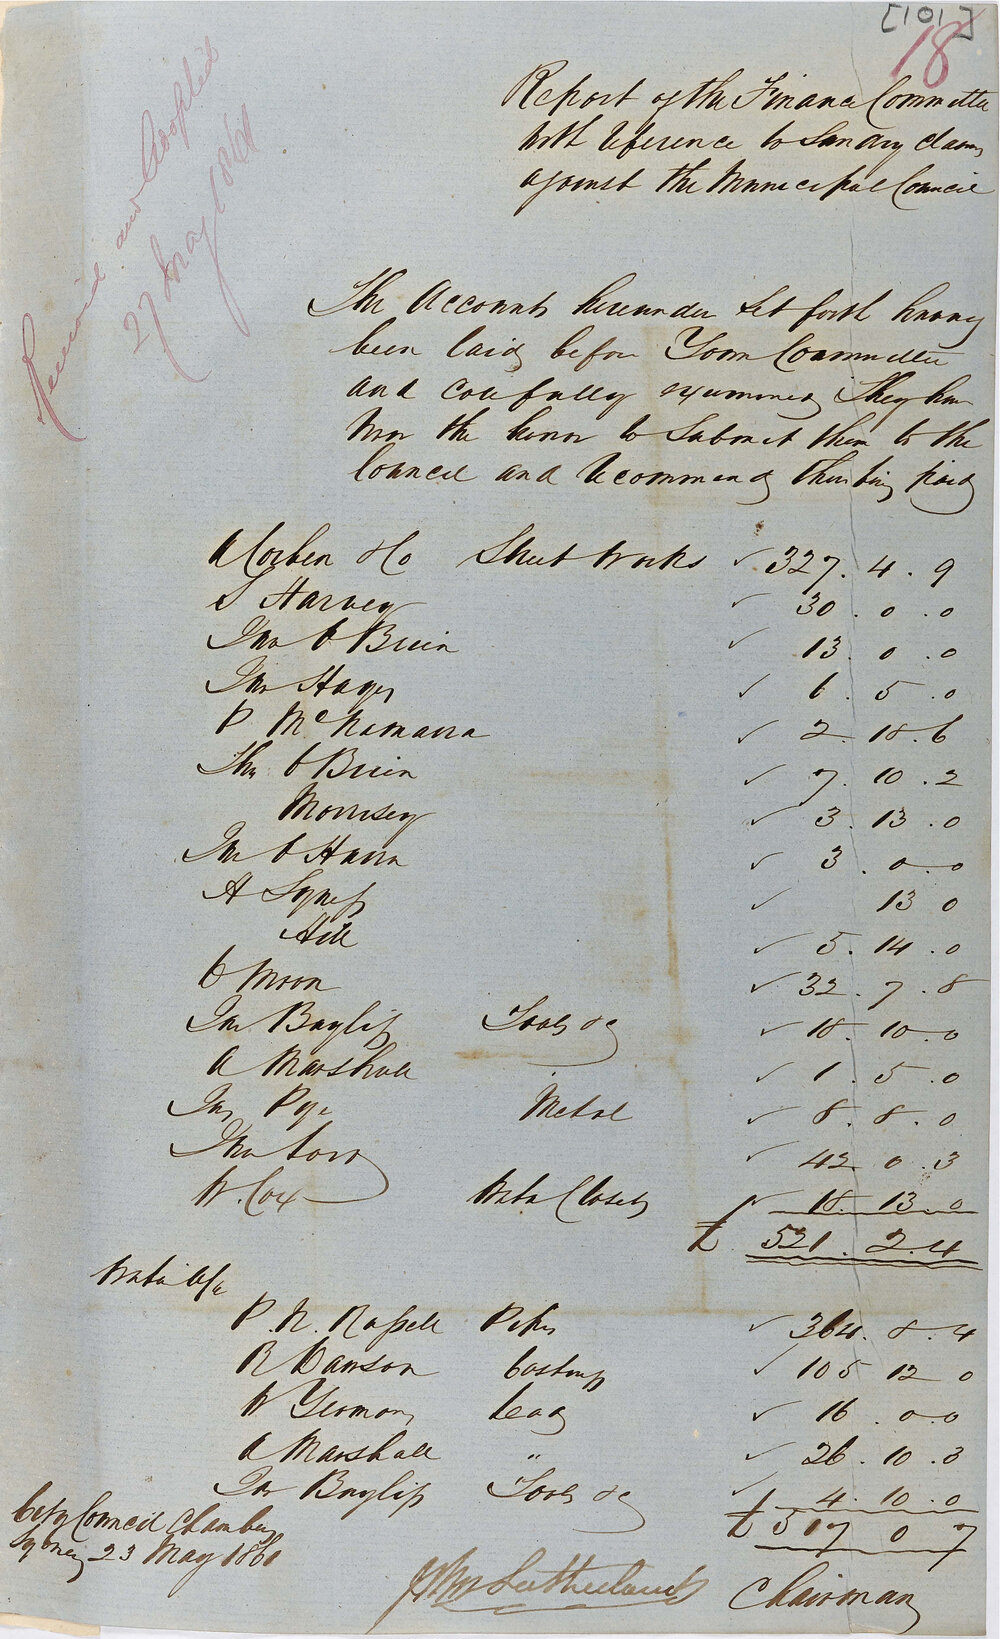 [101]
18
Report of the Finance Committee
with reference to Sundry claims
against the Municipal Council
Received and Adopted
27 May 1861
The Accounts hereunder set forth having
been laid before Your Committee
and carefully examined They have
now the honor to Submit them to the
Council and recommend their being paid
A Corben & Co Street Works ✓ 327. 4. 9
S Harvey ✓ 30. 0. 0
Jno O Brien ✓ 13. 0. 0
Jno Hayes ✓ 6. 5. 0
P McNamara ✓ 2. 18. 6
Thos O Brien ✓ 7. 10. 2
Morrisey ✓ 3. 13. 0
Jno O Hara ✓ 3. 0. 0
A ✓ 13 0
Hill ✓ 5. 14. 0
O Moon ✓ 32. 7. 8
Jas Bayliss Tools &c ✓ 18. 10. 0
A Marshall ✓ 1. 5. 0
Jas Pye Metal ✓ 8. 8. 0
Jno ✓ 42 0. 3
W. Cox Water Closets ✓ 18. 13. 0
£ 521. 2. 4
Water a/c
P. N. Russell Pipes ✓ 364. 8. 4
R Dawson Castings ✓ 105 12 0
W Yeomans Lead ✓ 16. 0. 0
A Marshall " ✓ 26. 10. 3
Jas Bayliss Tools &c ✓ 4. 10. 0
£ 517 0 7
City Council Chambers
Sydney 23 May 1861
Jno Sutherland Chairman